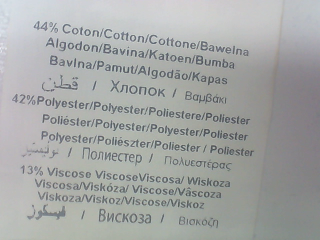 44% Coton/Cotton/Cottone/Bawelna
Algodon/Bavina/Katoen/Bumba
Bavlna/Pamut/Algodão/Kapas
قطن / Хлопок / Βαμβάκι
42%Polyester/Polyester/Poliestere/Poliester
Poliéster/Poliester/Polyester/Polyester
Polyester/Poliészter/Poliester / Poliester
بوليستير / Полиестер / Πολυεστέρας
13% Viscose ViscoseViscosa/ Wiskoza
Viscosa/Viskóza/ Viscose/Vãscoza
Viskoza/Viskoz/Viskose/Viskoz
فيسكوز / Вискоза / Βισκόζη